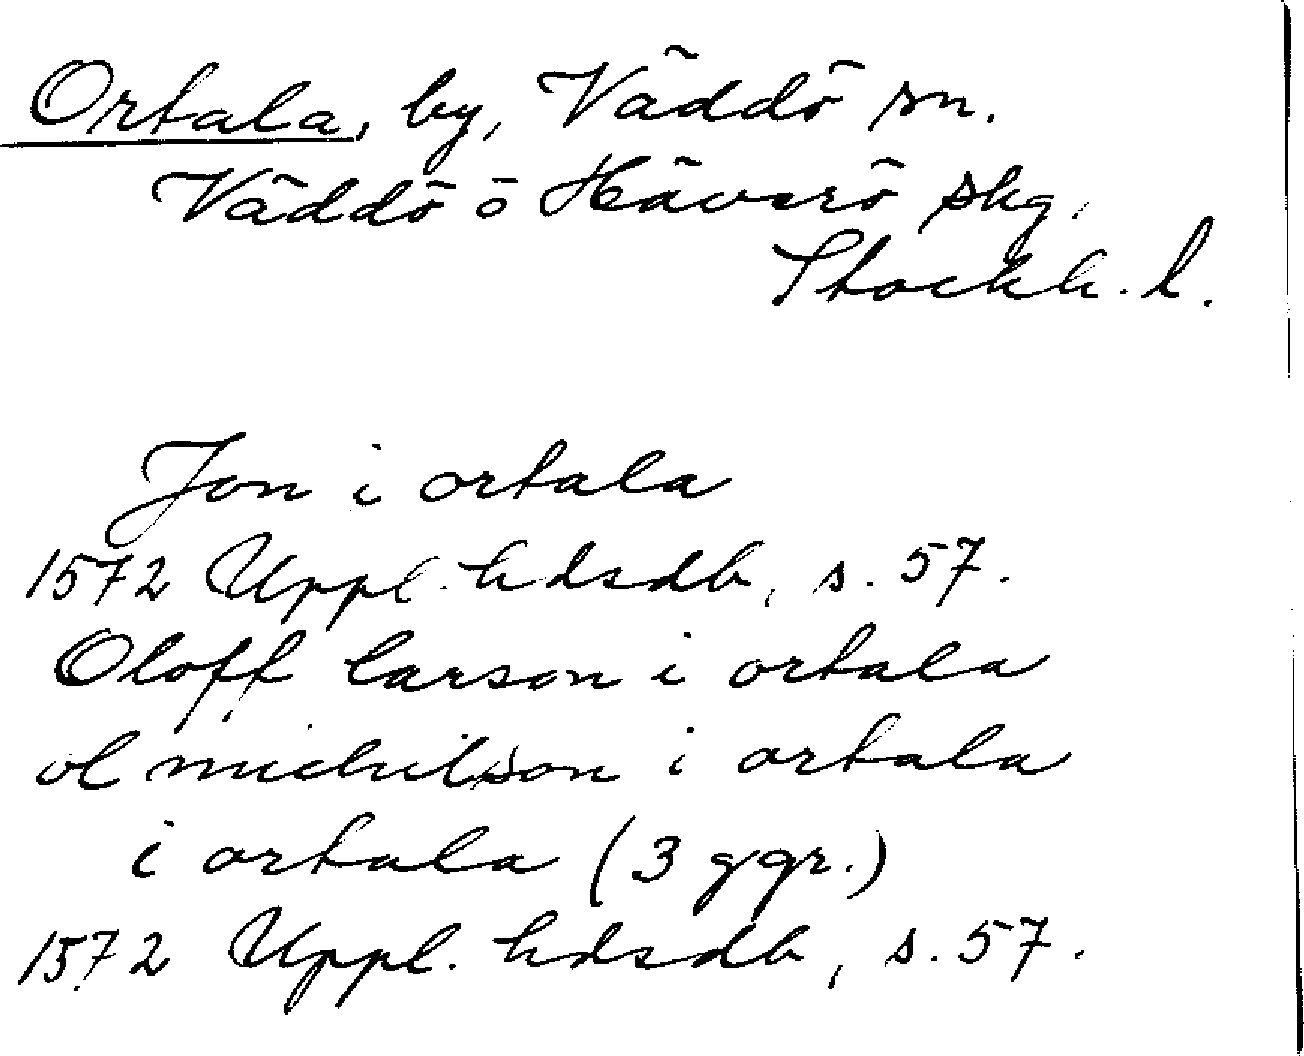 Ortala, by, Väddö sn.
Väddö o Häverö skg,
Stockh. l.
Jon i ortala
1572 Uppl. hdsdb, s. 57.
Oloff larson i ortala
ol michilson i ortala
i ortala (3 ggr.)
1572 Uppl. hdsdb, s. 57.